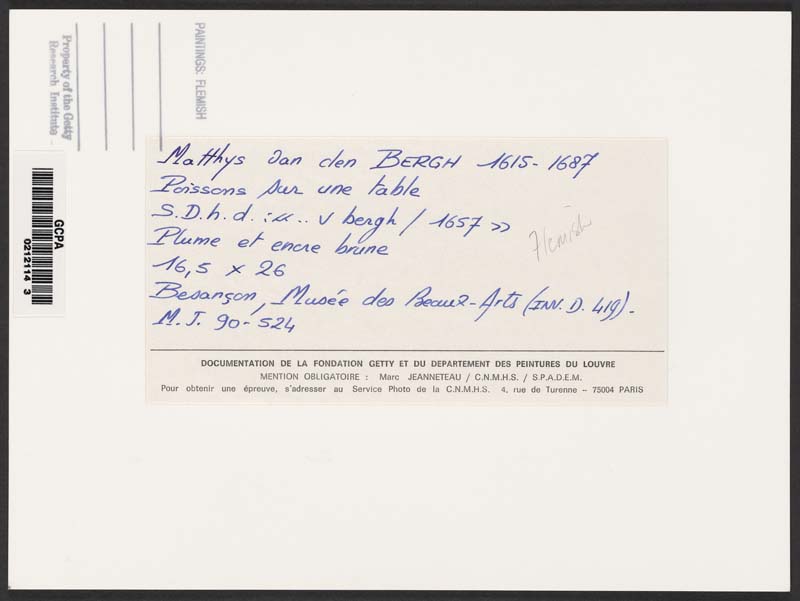 Property of the Getty
Research Institute
PAINTINGS: FLEMISH
GCPA
0212114 3
Matthys van den BERGH 1615-1687
Poissons sur une table
S.D.h.d. : «.. v bergh / 1657 »
Flemish
Plume et encre brune
16,5 x 26
Besançon, Musée des Beaux-Arts (INV. D. 419).
M.J. 90-524
DOCUMENTATION DE LA FONDATION GETTY ET DU DEPARTEMENT DES PEINTURES DU LOUVRE
MENTION OBLIGATOIRE : Marc JEANNETEAU / C.N.M.H.S. / S.P.A.D.E.M.
Pour obtenir une épreuve, s'adresser au Service Photo de la C.N.M.H.S. 4, rue de Turenne – 75004 PARIS